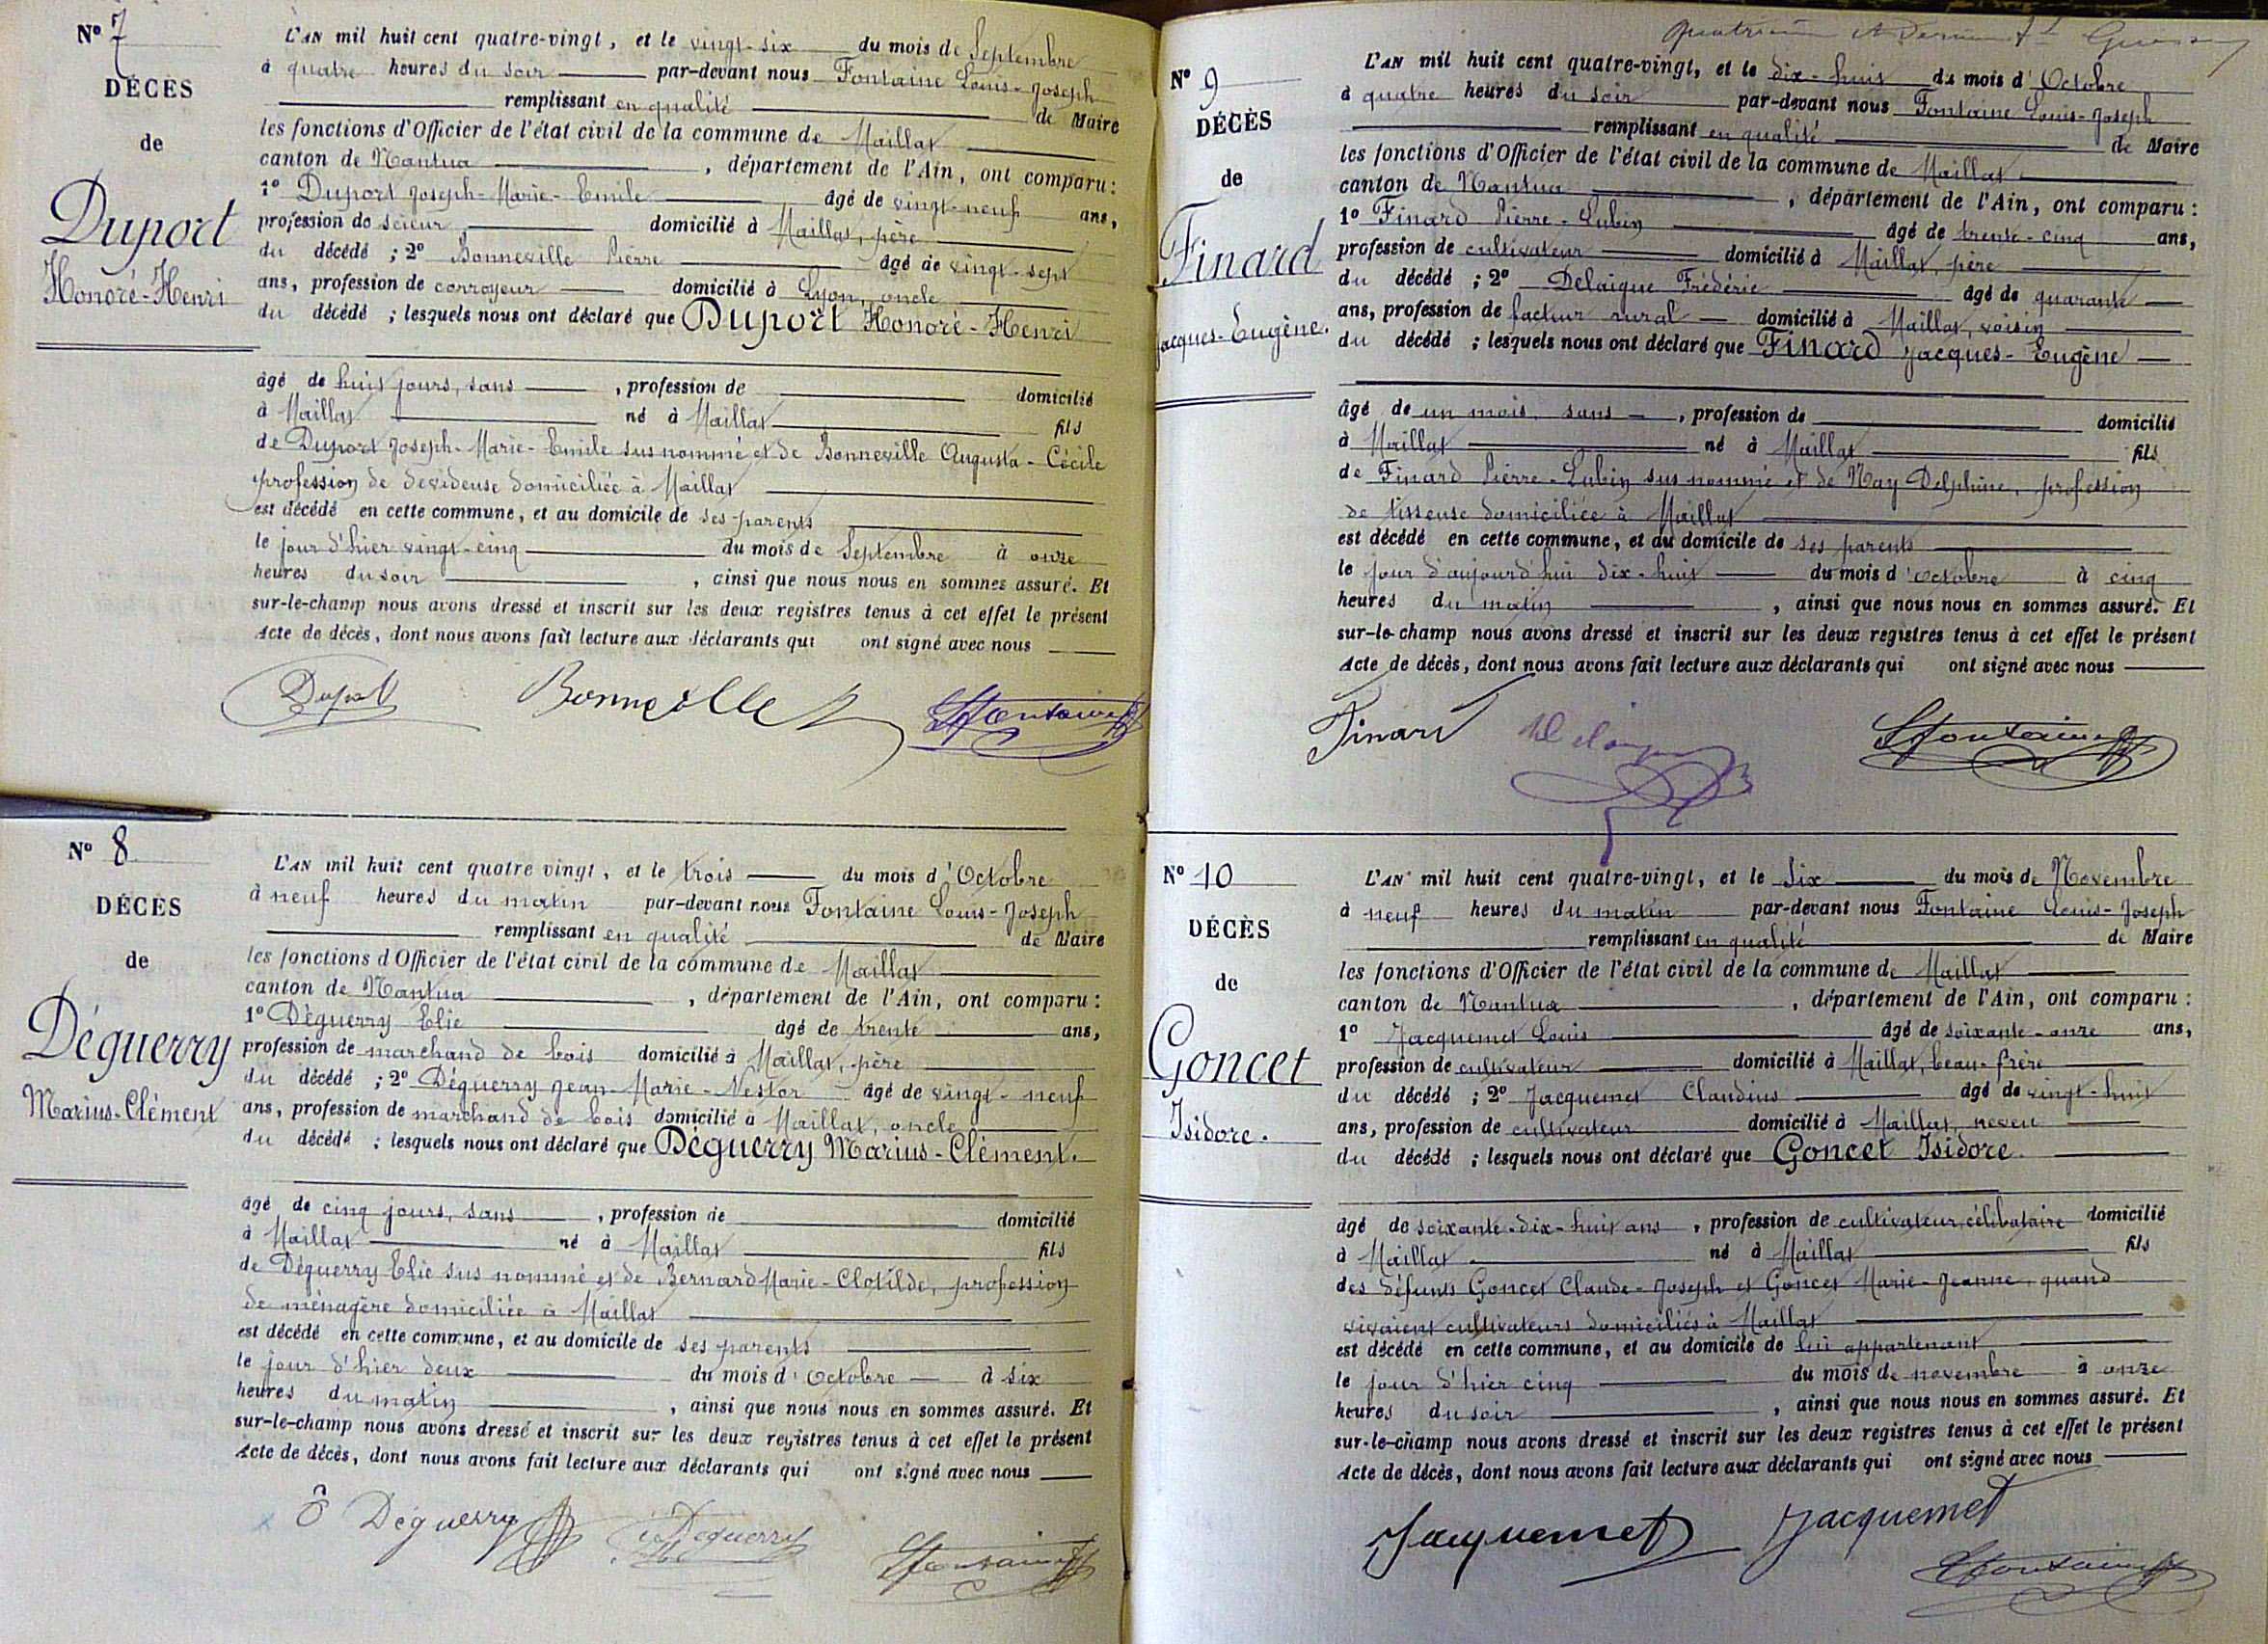 N° 7
DÉCÈS
de
Duport
Honoré-Henri
L'AN mil huit cent quatre-vingt, et le vingt-six du mois de Septembre
à quatre heures du soir par-devant nous Fontaine Louis-Joseph
remplissant en qualité de Maire
les fonctions d'Officier de l'état civil de la commune de Maillat
canton de Nantua, département de l'Ain, ont comparu:
1° Duport Joseph-Marie-Emile âgé de vingt-neuf ans,
profession de scieur, domicilié à Maillat, père
du décédé ; 2° Bonneville Pierre âgé de vingt-sept
ans, profession de corroyeur domicilié à Lyon, oncle
du décédé ; lesquels nous ont déclaré que Duport Honoré-Henri
âgé de huit jours, sans, profession de domicilié
à Maillat né à Maillat fils
de Duport Joseph-Marie-Emile susnommé et de Bonneville Augusta-Cécile
profession de dévideuse domiciliée à Maillat
est décédé en cette commune, et au domicile de ses parents
le jour d'hier vingt-cinq du mois de Septembre à onze
heures du soir, ainsi que nous nous en sommes assuré. Et
sur-le-champ nous avons dressé et inscrit sur les deux registres tenus à cet effet le présent
Acte de décès, dont nous avons fait lecture aux déclarants qui ont signé avec nous
Duport Bonneville LFontaine
N° 8
DÉCÈS
de
Déguerry
Marius-Clément
L'AN mil huit cent quatre vingt, et le trois du mois d'Octobre
à neuf heures du matin par-devant nous Fontaine Louis-Joseph
remplissant en qualité de Maire
les fonctions d'Officier de l'état civil de la commune de Maillat
canton de Nantua, département de l'Ain, ont comparu:
1° Déguerry Elie âgé de trente ans,
profession de marchand de bois domicilié à Maillat, père
du décédé ; 2° Déguerry Jean-Marie-Nestor âgé de vingt-neuf
ans, profession de marchand de bois domicilié à Maillat, oncle
du décédé ; lesquels nous ont déclaré que Déguerry Marius-Clément.
âgé de cinq jours, sans, profession de domicilié
à Maillat né à Maillat fils
de Déguerry Elie sus nommé et de Bernard Marie-Clotilde, profession
de ménagère domiciliée à Maillat
est décédé en cette commune, et au domicile de ses parents
le jour d'hier deux du mois d'Octobre à six
heures du matin, ainsi que nous nous en sommes assuré. Et
sur-le-champ nous avons dressé et inscrit sur les deux registres tenus à cet effet le présent
Acte de décès, dont nous avons fait lecture aux déclarants qui ont signé avec nous
Déguerry Déguerry LFontaine
quatrième et dernier
N° 9
DÉCÈS
de
Finard
Jacques-Eugène.
L'AN mil huit cent quatre-vingt, et le dix-huit du mois d'Octobre
à quatre heures du soir par-devant nous Fontaine Louis-Joseph
remplissant en qualité de Maire
les fonctions d'Officier de l'état civil de la commune de Maillat
canton de Nantua, département de l'Ain, ont comparu:
1° Finard Pierre-Lubin âgé de trente-cinq ans,
profession de cultivateur domicilié à Maillat, père
du décédé ; 2° Delaigue Frédéric âgé de quarante
ans, profession de facteur rural domicilié à Maillat, voisin
du décédé ; lesquels nous ont déclaré que Finard Jacques-Eugène
âgé de un mois, sans, profession de domicilié
à Maillat né à Maillat fils
de Finard Pierre-Lubin sus nommé et de Nay Delphine, profession
de tisseuse domiciliée à Maillat
est décédé en cette commune, et au domicile de ses parents
le jour d'aujourd'hui dix-huit du mois d'octobre à cinq
heures du matin, ainsi que nous nous en sommes assuré. Et
sur-le-champ nous avons dressé et inscrit sur les deux registres tenus à cet effet le présent
Acte de décès, dont nous avons fait lecture aux déclarants qui ont signé avec nous
Finard Delaigue LFontaine
N° 10
DÉCÈS
de
Goncet
Isidore.
L'AN mil huit cent quatre-vingt, et le six du mois de Novembre
à neuf heures du matin par-devant nous Fontaine Louis-Joseph
remplissant en qualité de Maire
les fonctions d'Officier de l'état civil de la commune de Maillat
canton de Nantua, département de l'Ain, ont comparu:
1° Jacquemet Louis âgé de soixante-onze ans,
profession de cultivateur domicilié à Maillat, beau-frère
du décédé ; 2° Jacquemet Claudius âgé de vingt-huit
ans, profession de cultivateur domicilié à Maillat, neveu
du décédé ; lesquels nous ont déclaré que Goncet Isidore.
âgé de soixante-dix-huit ans, profession de cultivateur, célibataire domicilié
à Maillat né à Maillat fils
des défunts Goncet Claude-Joseph et Goncet Marie-Jeanne, quand
vivaient cultivateurs domiciliés à Maillat
est décédé en cette commune, et au domicile de lui appartenant
le jour d'hier cinq du mois de novembre à onze
heures du soir, ainsi que nous nous en sommes assuré. Et
sur-le-champ nous avons dressé et inscrit sur les deux registres tenus à cet effet le présent
Acte de décès, dont nous avons fait lecture aux déclarants qui ont signé avec nous
Jacquemet Jacquemet
LFontaine